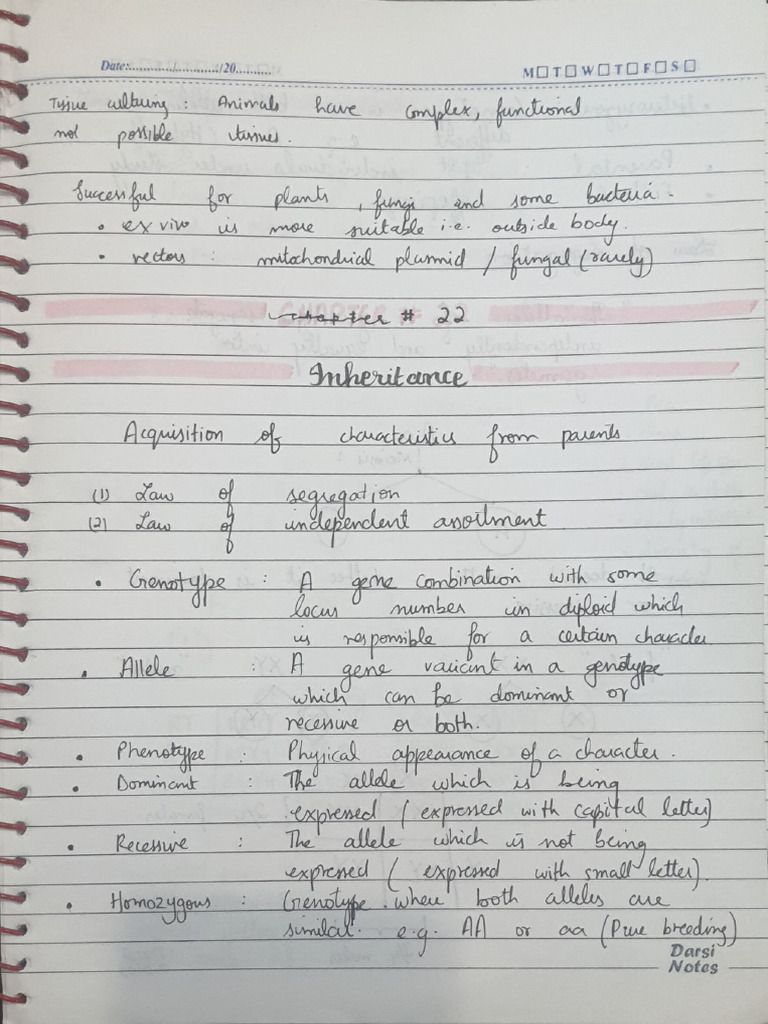 Date:............/............/20..........
M☐ T☐ W☐ T☐ F☐ S☐
Tissue culturing : Animals have complex, functional
not possible tissues.
Successful for plants , fungi and some bacteria.
• ex vivo is more suitable i.e. outside body.
• vectors : mitochondrial plasmid / fungal (rarely)
Chapter # 22
Inheritance
Acquisition of characteristics from parents
(1) Law of segregation
(2) Law of independent assortment
• Genotype : A gene combination with some
locus number in diploid which
is responsible for a certain character
• Allele : A gene variant in a genotype
which can be dominant or
recessive or both.
• Phenotype : Physical appearance of a character.
• Dominant : The allele which is being
expressed ( expressed with capital letter)
• Recessive : The allele which is not being
expressed ( expressed with small letter).
• Homozygous : Genotype where both alleles are
similar. e.g. AA or aa (Pure breeding)
Darsi
Notes